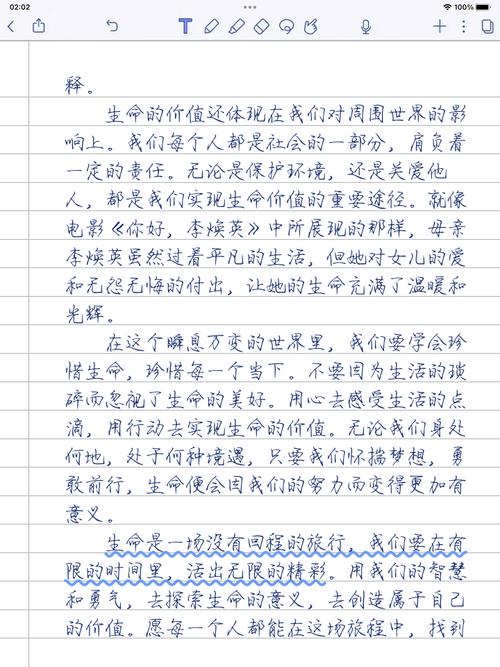 02:02
100%
T
释。
生命的价值还体现在我们对周围世界的影
响上。我们每个人都是社会的一部分，肩负着
一定的责任。无论是保护环境，还是关爱他
人，都是我们实现生命价值的重要途径。就像
电影《你好，李焕英》中所展现的那样，母亲
李焕英虽然过着平凡的生活，但她对女儿的爱
和无怨无悔的付出，让她的生命充满了温暖和
光辉。
在这个瞬息万变的世界里，我们要学会珍
惜生命，珍惜每一个当下。不要因为生活的琐
碎而忽视了生命的美好。用心去感受生活的点
滴，用行动去实现生命的价值。无论我们身处
何地，处于何种境遇，只要我们怀揣梦想，勇
敢前行，生命便会因我们的努力而变得更加有
意义。
生命是一场没有回程的旅行，我们要在有
限的时间里，活出无限的精彩。用我们的智慧
和勇气，去探索生命的意义，去创造属于自己
的价值。愿每一个人都能在这场旅程中，找到